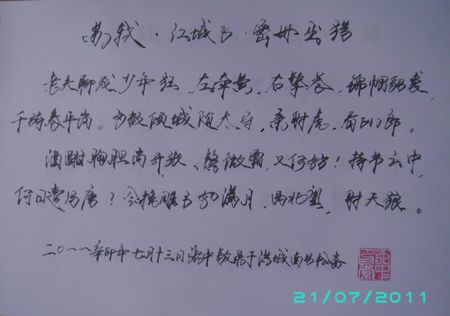 苏轼·江城子·密州出猎
老夫聊发少年狂，左牵黄，右擎苍，锦帽貂裘，
千骑卷平岗。为报倾城随太守，亲射虎，看孙郎。
酒酣胸胆尚开张，鬓微霜，又何妨！持节云中，
何日遣冯唐？会挽雕弓如满月，西北望，射天狼。
二〇一一辛卯年七月十三日 于港城南 松斋
21/07/2011